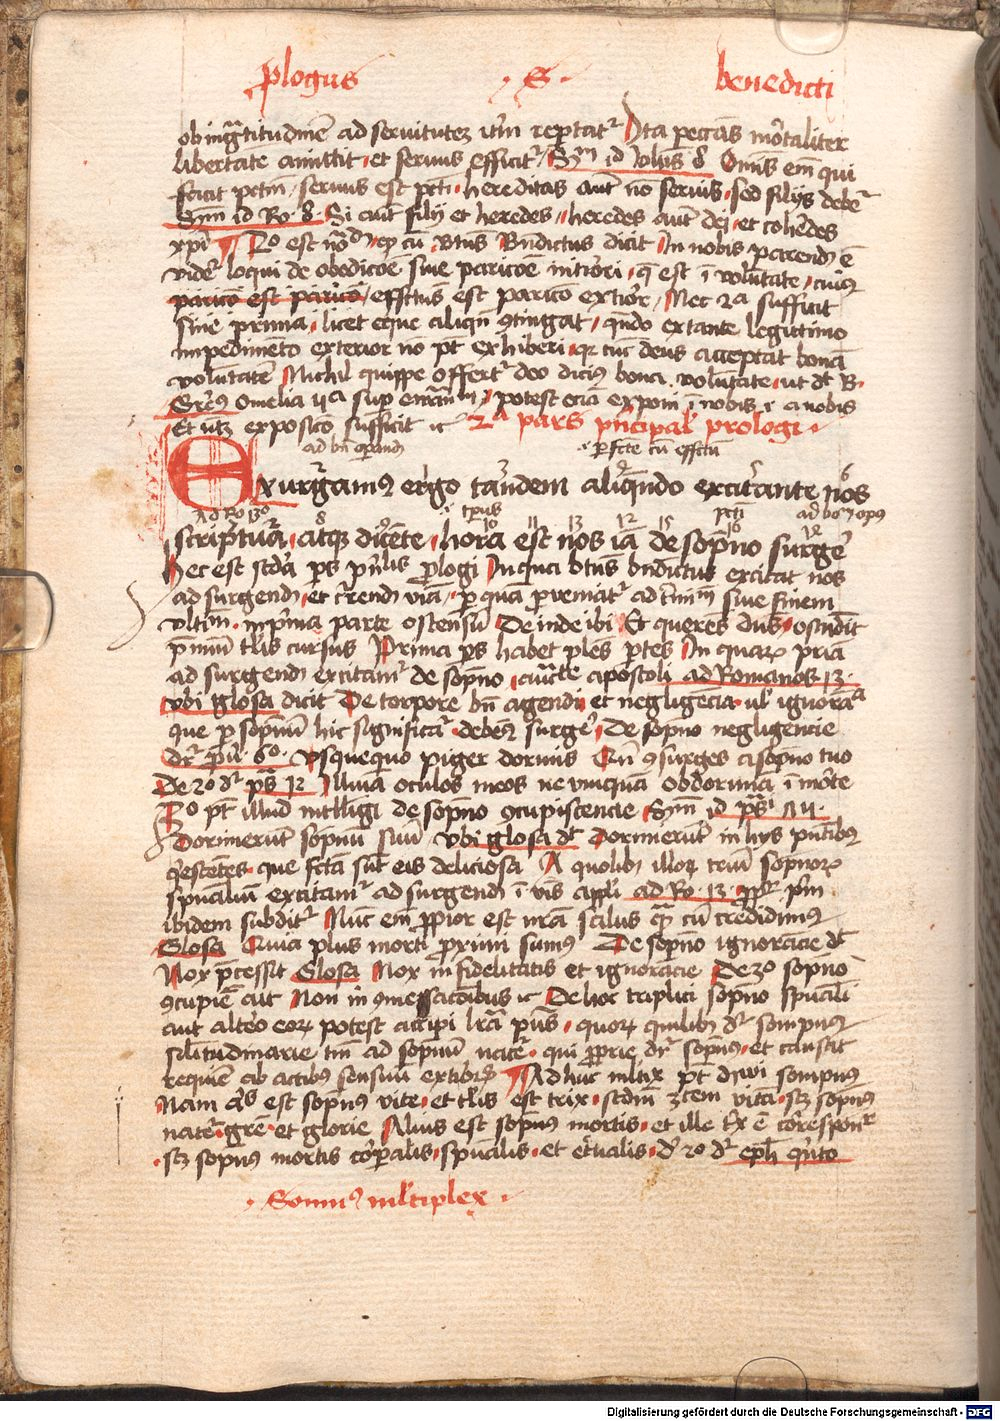 plogus · S · benedicti
ob ingratitudinē ad servitutez itm reptatr Ita peccās mortaliter
libertatē amittit · et servus efficitr / Sym id Iohīs 8 Omīs em qui
facit pctm / servus est pcti · hereditas aut nō servis · sed filiis deber
Sym id Ro · 8 · Si aut filij et heredes / heredes aut dei · et coherdes
xpi
vider loqui de obedicōe sive paricōe initiori · q est ī volūtate · cuius
paricō est paricō / effctus est paricō extior / Nec 2a sufficit
sine prima · licet eque aliqn contingat / qndo extante legittimo
impedimēto exterior nō pt exhiberi · qr tūc deus acceptat bonā
volūtatē Nichil quippe offertr deo dicius bona volūtate · ut dt B ·
potest eciā exponi ī nobis · i · a nobis
Et utz expositio sufficit 2a pars principal prologi ·
ad bn opandū · i · perfcte cū effctu
Exurgamus ergo tandem aliqndo excitante nos
Ad Ro 13o pcti ad bonū opus
scriptura · atqz dicente · hora est nos iā de sopno surge
Hec est scda ps pnlis prologi In qua btus bndictus excitat nos
ad surgendū · et crendū viā / p quā pveniatr ad tminū sive finem
ultim · in prima parte ostensū Deinde ibi Et querēs dns · ostendit
Prima ps habet ples ptes In quarū priā
ad surgendū excitamr de sopno / auctte apostoli ad Romanos · 13 ·
ubi glosa dicit De torpore bn agendi et negligēcia · ul ignorācia
que p sopnū hic significatr · debemus surge / De sopno negligencie
dr pū 6o · Usquequo piger dormis Qn consurges a sopno tuo
De 2o dr ps 12 Illumīa oculos meos ne unquā obdormiā ī morte
pt illud intelligi de sopno concupiscencie Sym id ps
Dormierūt sopnū suū Ubi glosa dt Dormierūt in hys pntibus
qescētes · que fcta sūt eis deliciosa A quolibz illorū triū sopnorū
spualiū excitamr ad surgendū ī vbis apli ad Ro · 13 ·
ibidem subditr Nūc em ppior est nrā salus qm cū credidimus
Glosa Quia plus morti pximi sumus De sopno ignorācie dt
Nox pcessit Glosa Nox infidelitatis et ignorācie De 3o sopno
concupiē aut Non in comessacōibus De hoc triplici sopno spuali
aut altero eorū potest accipi lrā pūs · quorū quilibz dr sompnus
silitudinarie tm ad sopnū nater · qui pprie dr sopnus · et causat
requiē ab actibus sensuū extiorū Adhuc mltix pt dici sompnus
Nam qs est sopnus vite · et tlis est trix · scdm 3cem vitā · scz sopnus
nater · grē · et glorie Alius est sopnus mortis · et ille
· scz sopnus mortis corpalis · spualis · et eternalis · d 2o dr eph qnto
· Somnus multiplex ·
Digitalisierung gefördert durch die Deutsche Forschungsgemeinschaft - DFG